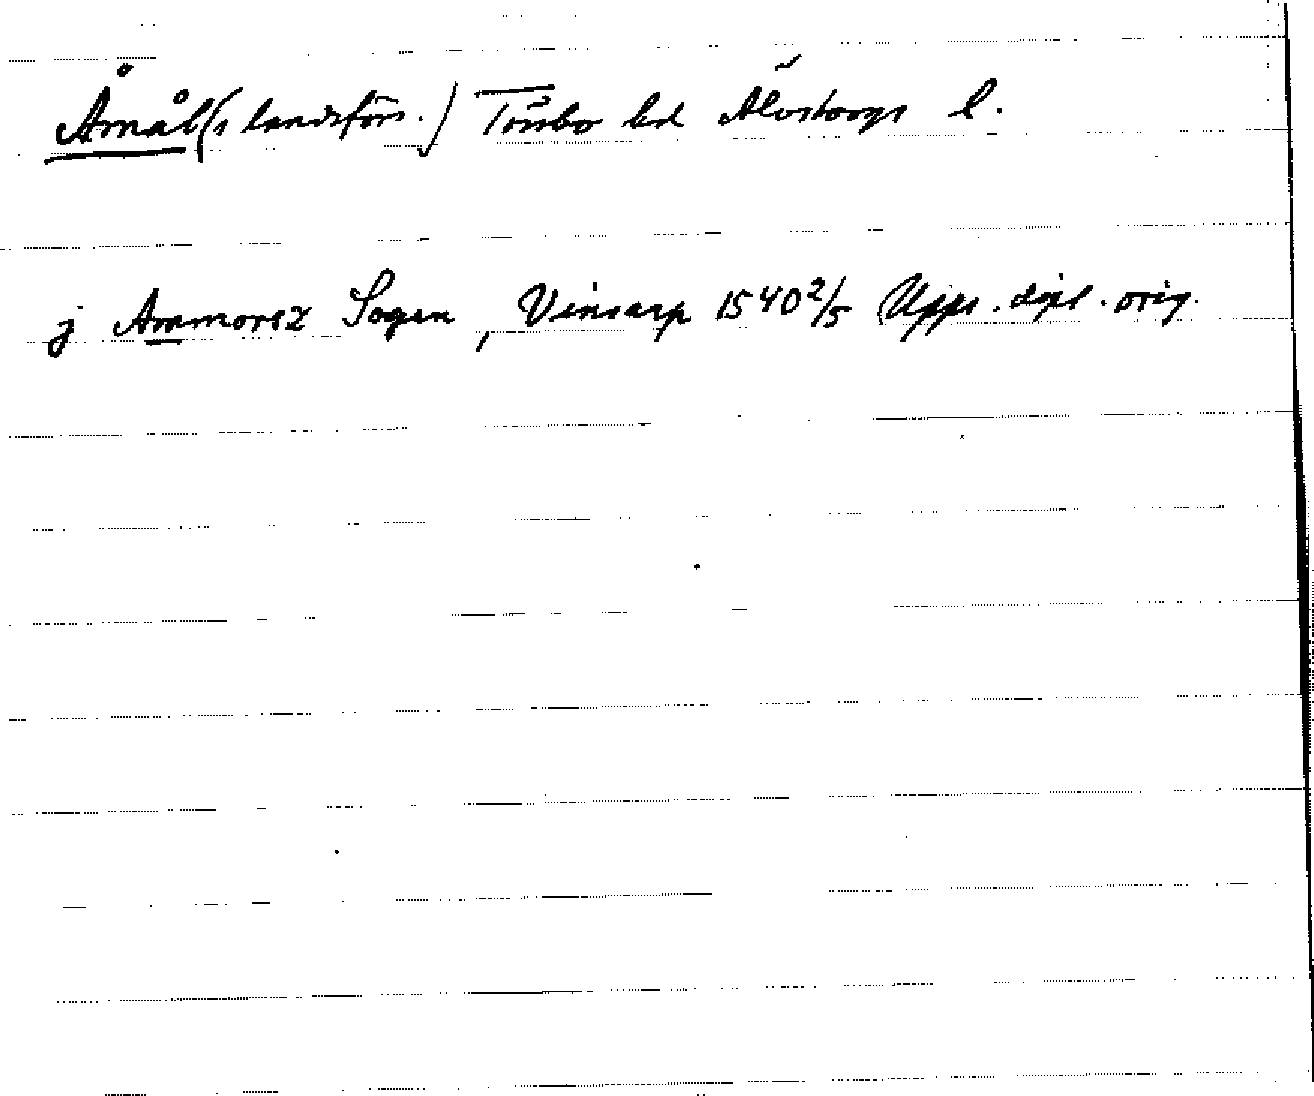 Åmål (s landsförs.) Tössbo hd Älvsborgs l.
j Ammorsz Sogen, Vinsarp 1540 2/5 Upps. dipl. orig.